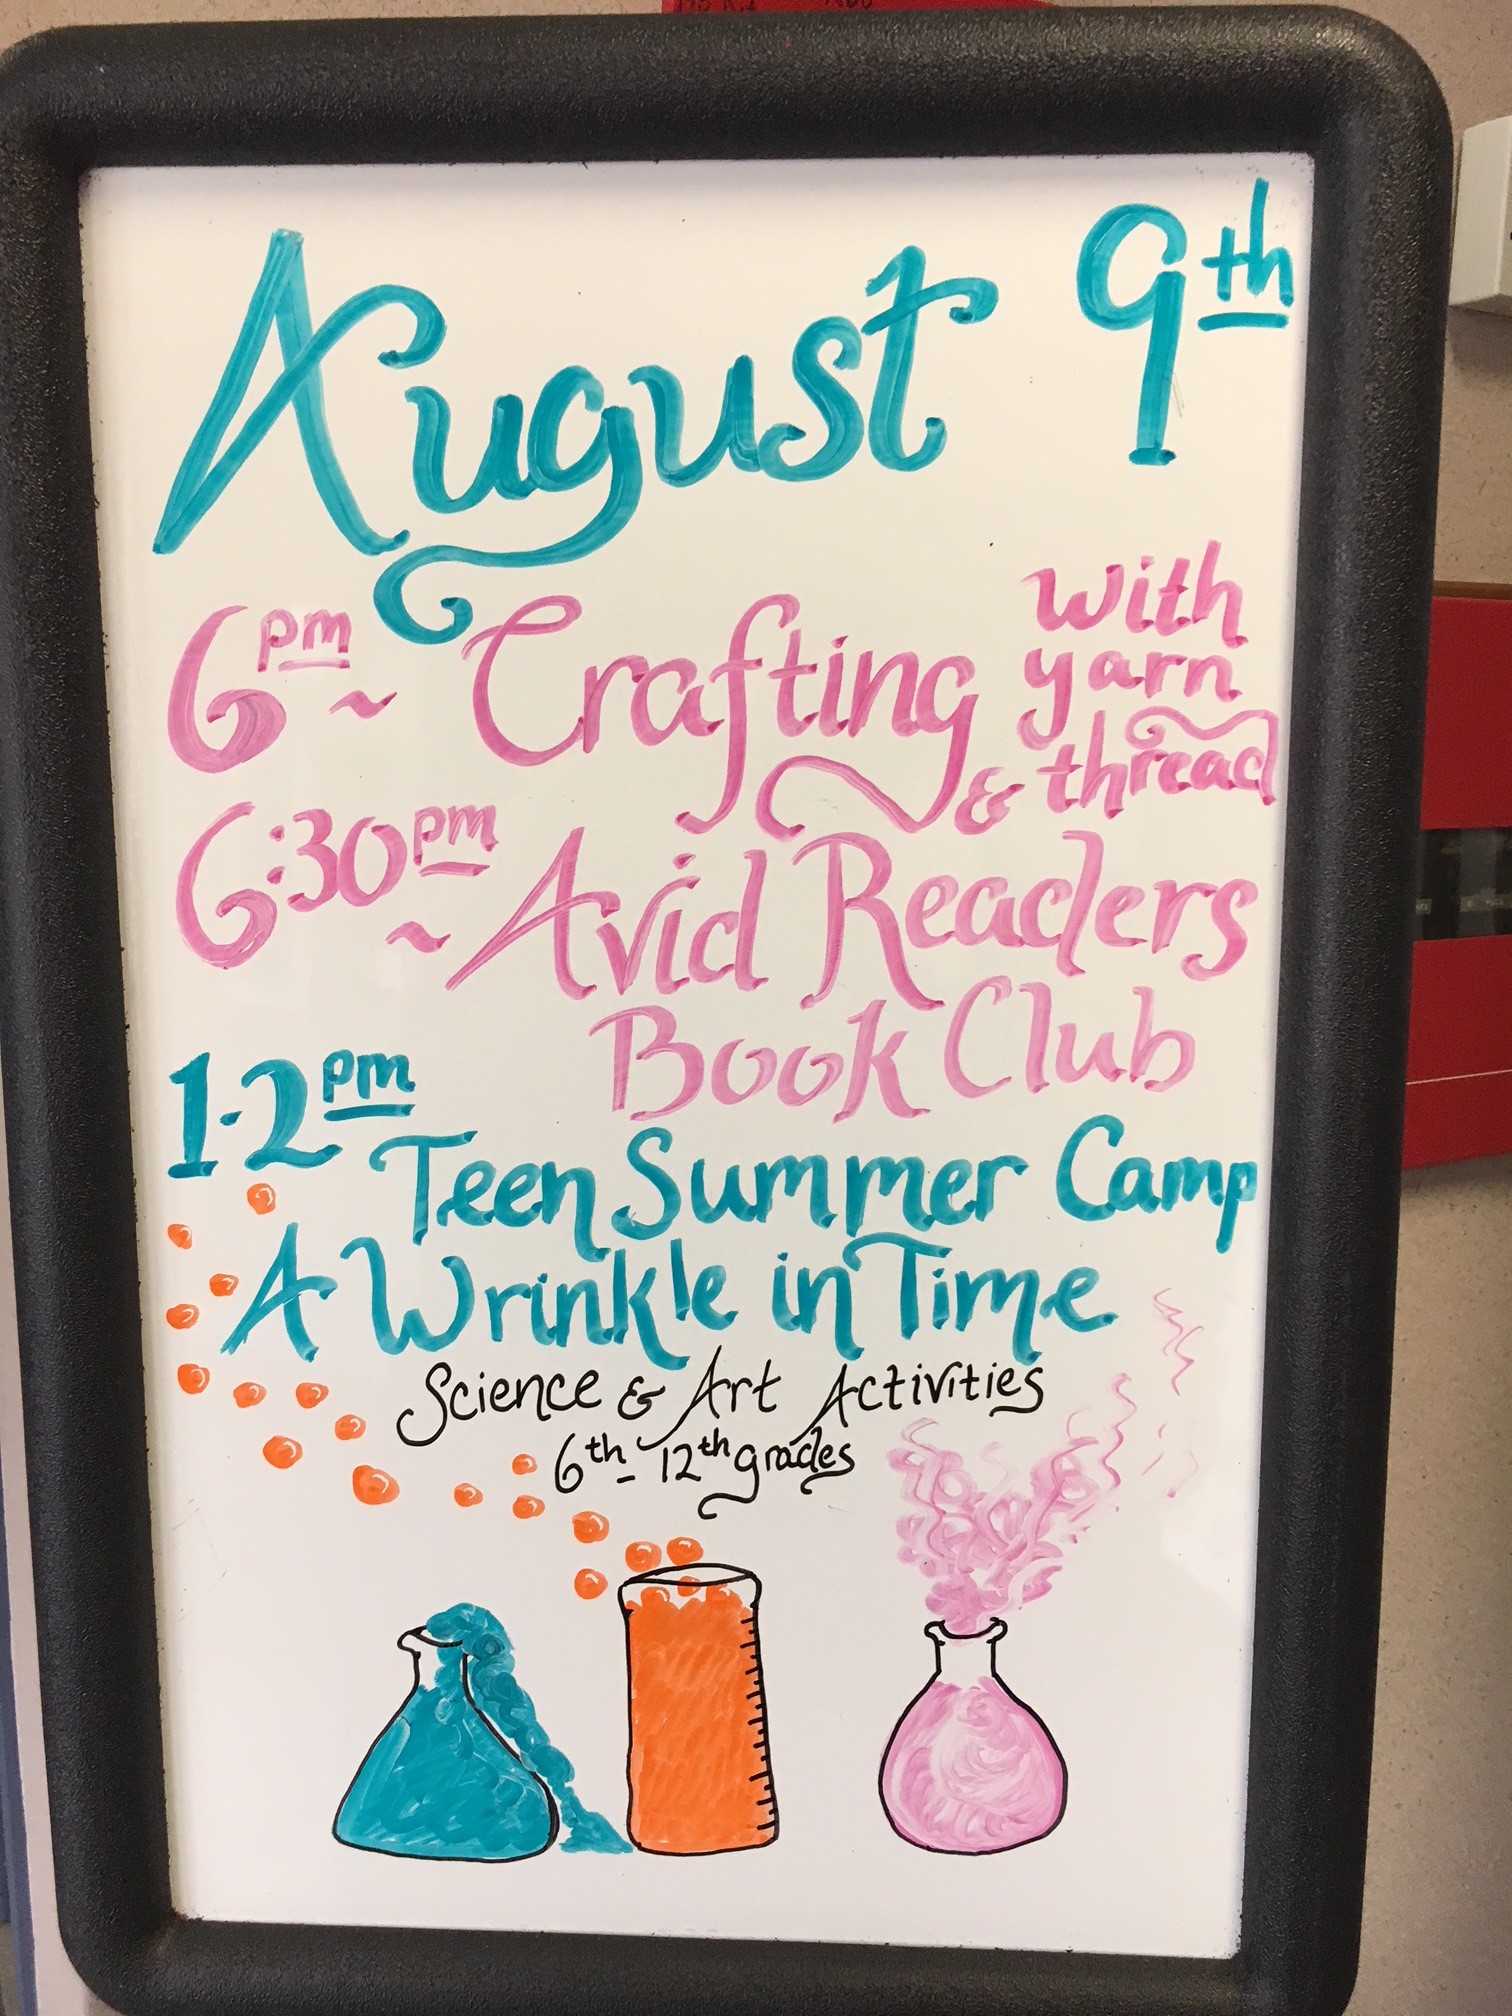 August 9th
6pm ~ Crafting with yarn & thread
6:30pm ~ Avid Readers
Book Club
1-2pm
Teen Summer Camp
A Wrinkle in Time
Science & Art Activities
6th - 12th grades